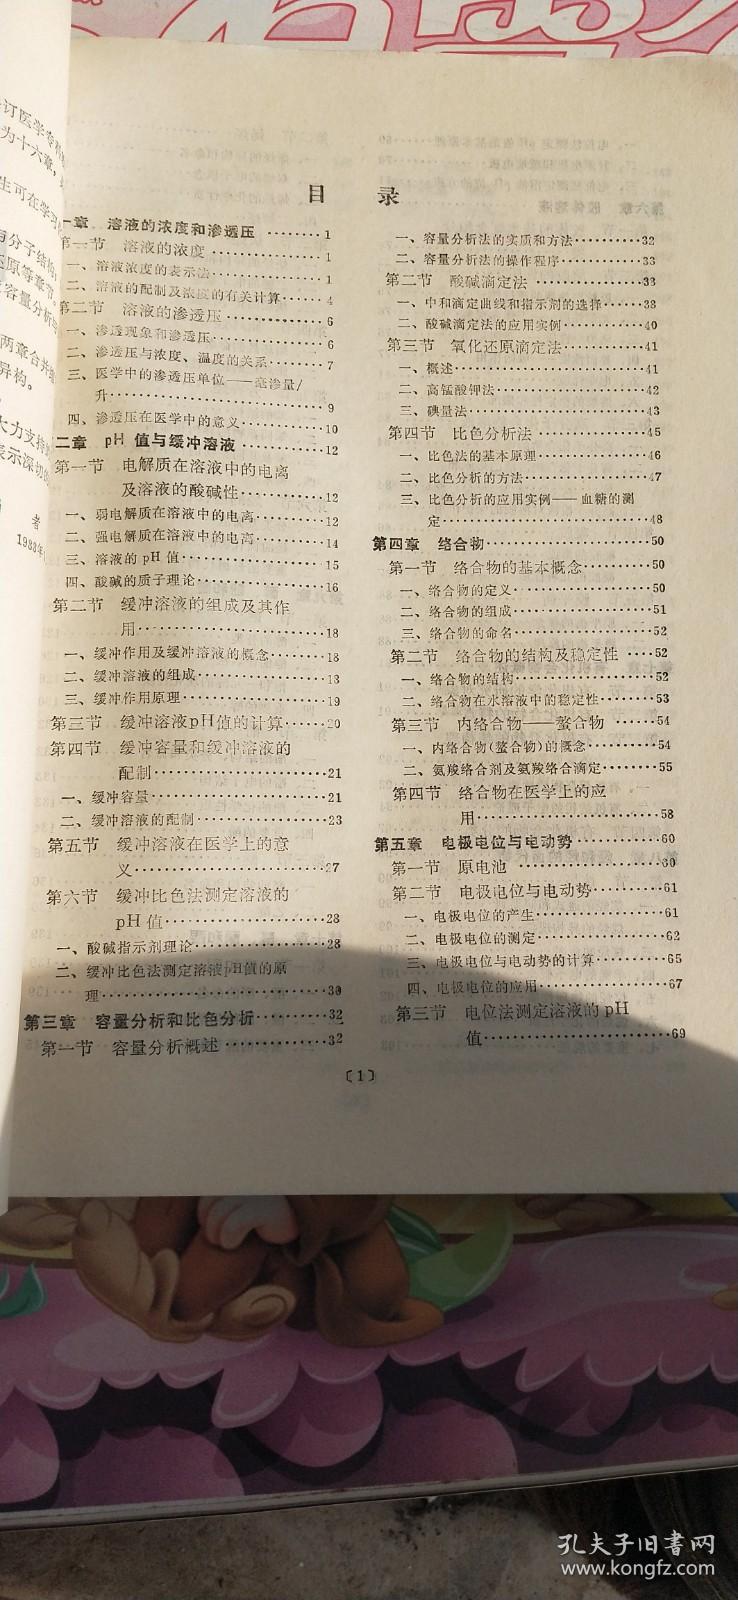 订医学专
为十六章，
生可在学习
与分子结构
还原等章节
容量分析
两章合并
异构。
大力支持
表示深切
者
1983年
目 录
一章 溶液的浓度和渗透压 ········1
第一节 溶液的浓度 ·············1
一、溶液浓度的表示法·············1
二、溶液的配制及浓度的有关计算·····4
第二节 溶液的渗透压············6
一、渗透现象和渗透压·············6
二、渗透压与浓度、温度的关系·······7
三、医学中的渗透压单位——毫渗量/
升·······················9
四、渗透压在医学中的意义·········10
二章 pH 值与缓冲溶液 ··········12
第一节 电解质在溶液中的电离
及溶液的酸碱性···········12
一、弱电解质在溶液中的电离········12
二、强电解质在溶液中的电离········14
三、溶液的 pH 值···············15
四、酸碱的质子理论·············16
第二节 缓冲溶液的组成及其作
用·····················18
一、缓冲作用及缓冲溶液的概念·······18
二、缓冲溶液的组成·············18
三、缓冲作用原理··············19
第三节 缓冲溶液pH值的计算······20
第四节 缓冲容量和缓冲溶液的
配制···················21
一、缓冲容量·················21
二、缓冲溶液的配制·············23
第五节 缓冲溶液在医学上的意
义·····················27
第六节 缓冲比色法测定溶液的
pH 值··················28
一、酸碱指示剂理论·············28
二、缓冲比色法测定溶液pH值的原
理······················30
第三章 容量分析和比色分析·······32
第一节 容量分析概述··········32
一、容量分析法的实质和方法········32
二、容量分析法的操作程序·········33
第二节 酸碱滴定法 ············33
一、中和滴定曲线和指示剂的选择·····38
二、酸碱滴定法的应用实例·········40
第三节 氧化还原滴定法··········41
一、概述····················41
二、高锰酸钾法················42
三、碘量法··················43
第四节 比色分析法············45
一、比色法的基本原理···········46
二、比色分析的方法············47
三、比色分析的应用实例——血糖的测
定······················48
第四章 络合物················50
第一节 络合物的基本概念········50
一、络合物的定义··············50
二、络合物的组成··············51
三、络合物的命名··············52
第二节 络合物的结构及稳定性 ····52
一、络合物的结构··············52
二、络合物在水溶液中的稳定性·······53
第三节 内络合物——螯合物 ······54
一、内络合物(螯合物)的概念········54
二、氨羧络合剂及氨羧络合滴定······55
第四节 络合物在医学上的应
用·····················58
第五章 电极电位与电动势········60
第一节 原电池 ··············60
第二节 电极电位与电动势········61
一、电极电位的产生············61
二、电极电位的测定············62
三、电极电位与电动势的计算·······65
四、电极电位的应用············67
第三节 电位法测定溶液的 pH
值·····················69
〔1〕
孔夫子旧书网
www.kongfz.com